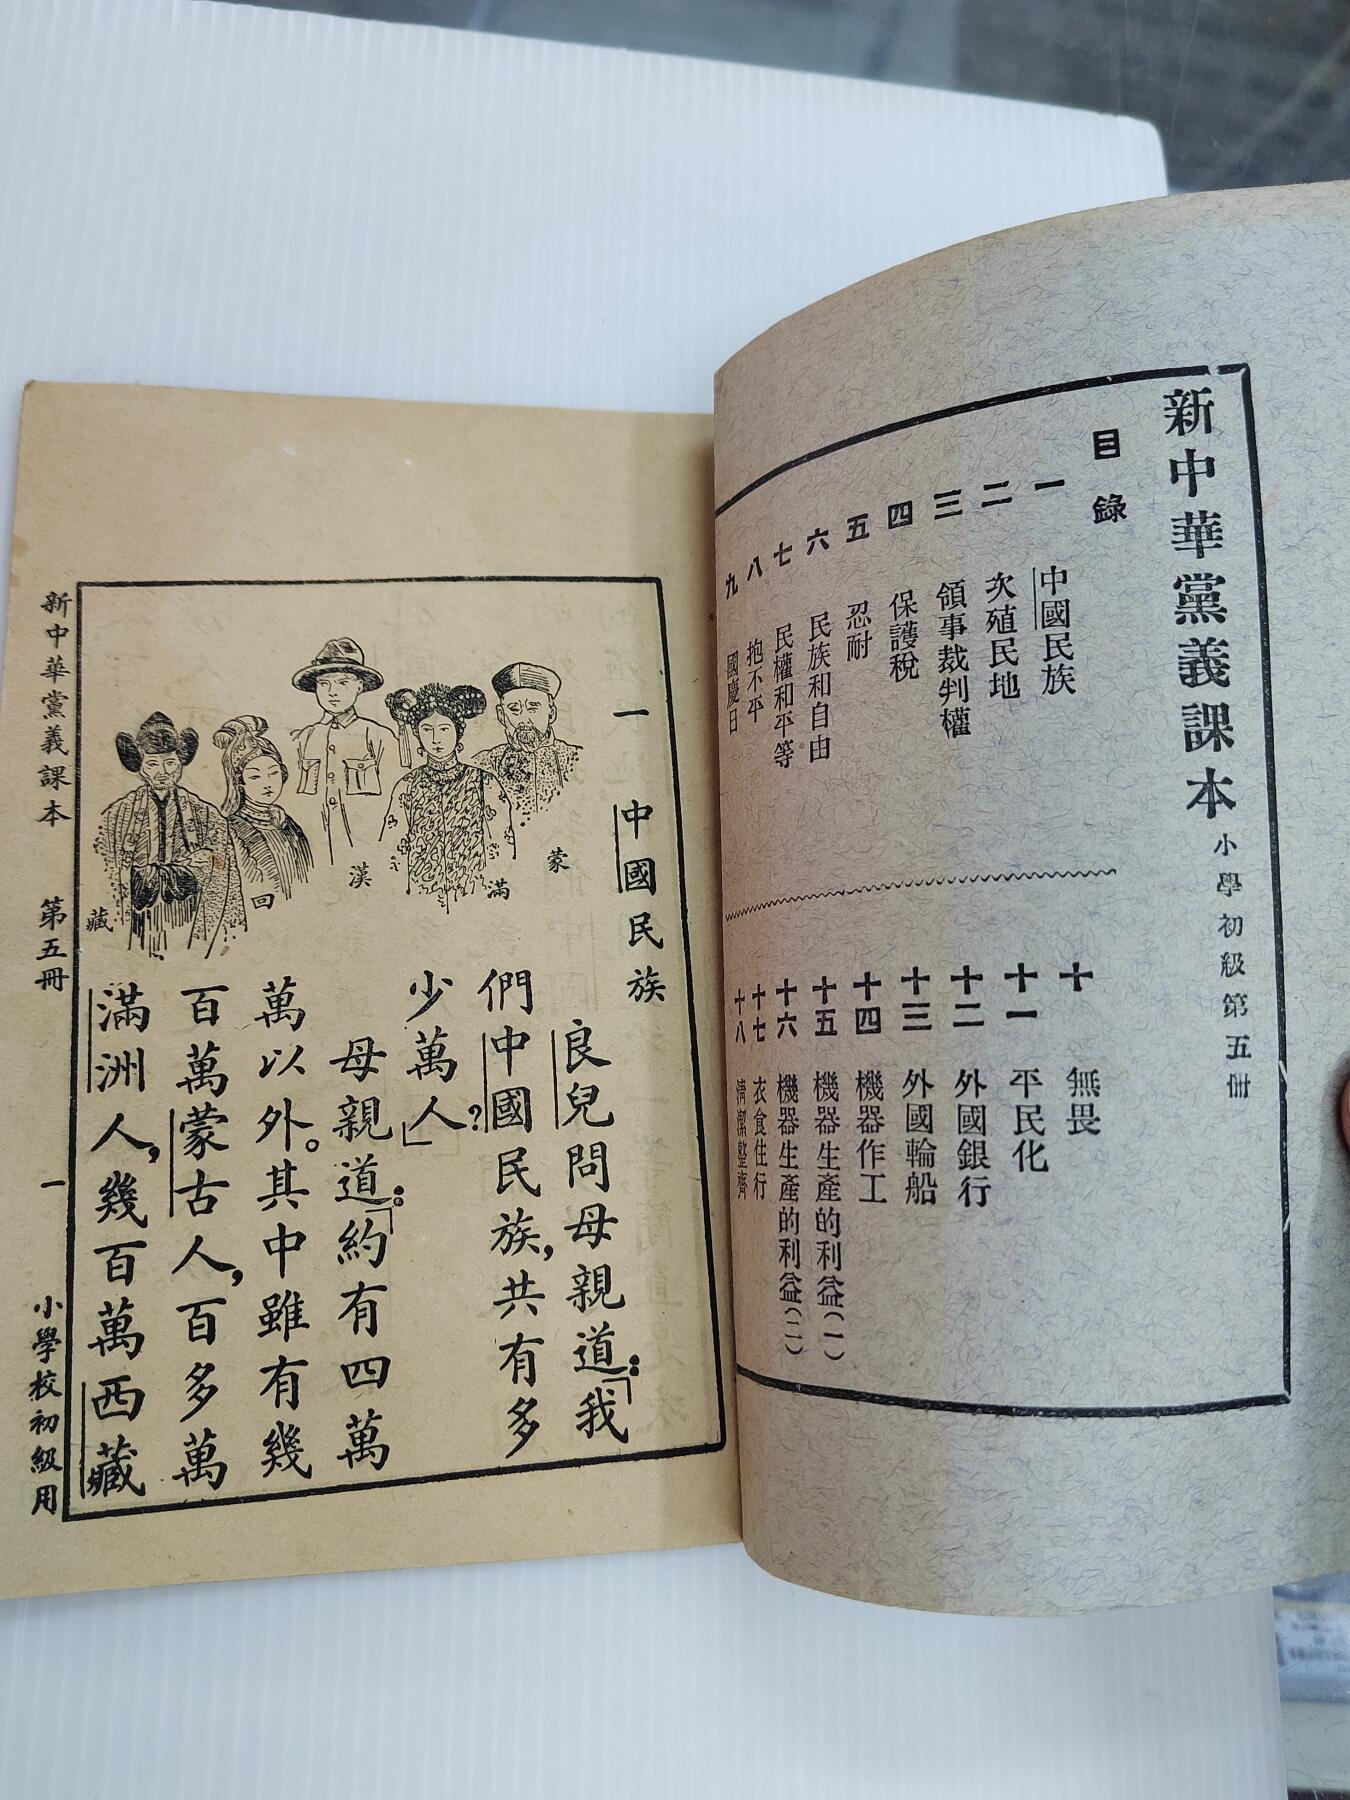 新中華黨義課本 小學初級第五冊
目錄
一 中國民族
二 次殖民地
三 領事裁判權
四 保護稅
五 忍耐
六 民族和自由
七 民權和平等
八 抱不平
九 國慶日
十 無畏
十一 平民化
十二 外國銀行
十三 外國輪船
十四 機器作工
十五 機器生產的利益(一)
十六 機器生產的利益(二)
十七 衣食住行
十八 清潔整齊
一 中國民族
蒙
滿
漢
回
藏
良兒問母親道:「我
們中國民族,共有多
少萬人?」
母親道:「約有四萬
萬以外。其中雖有幾
百萬蒙古人,百多萬
滿洲人,幾百萬西藏
新中華黨義課本 第五冊 一 小學校初級用